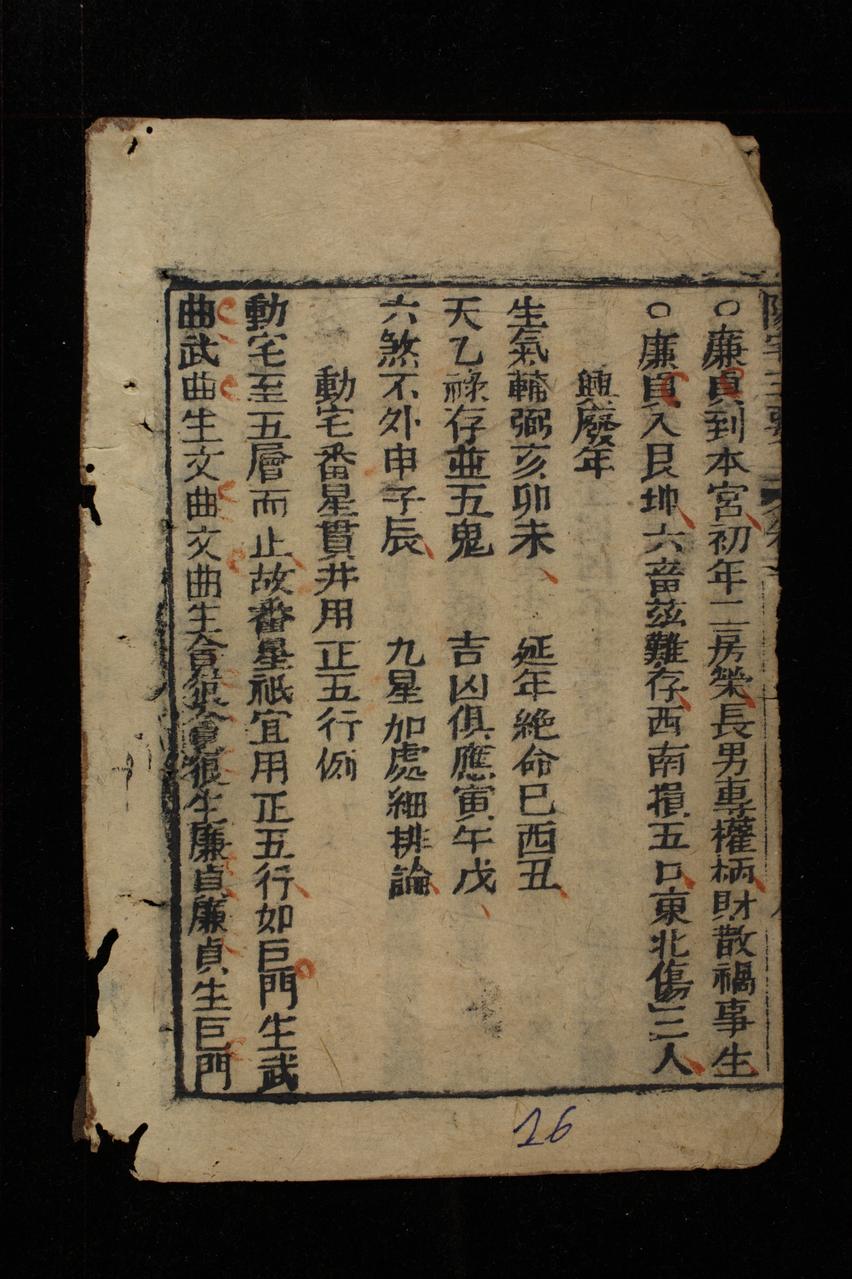 陽宅三要
○廉貞到本宮初年二房榮長男專權柄財散禍事生
○廉貞入艮坤六畜玆難存西南損五口東北傷三人
興廢年
生氣輔弼亥卯未　延年絶命巳酉丑
天乙祿存並五鬼　吉凶俱應寅午戊
六煞不外申子辰　九星加處細排論
動宅番星貫井用正五行例
動宅至五層而止故番星祇宜用正五行如巨門生武
曲武曲生文曲文曲生貪狼貪狼生廉貞廉貞生巨門
26